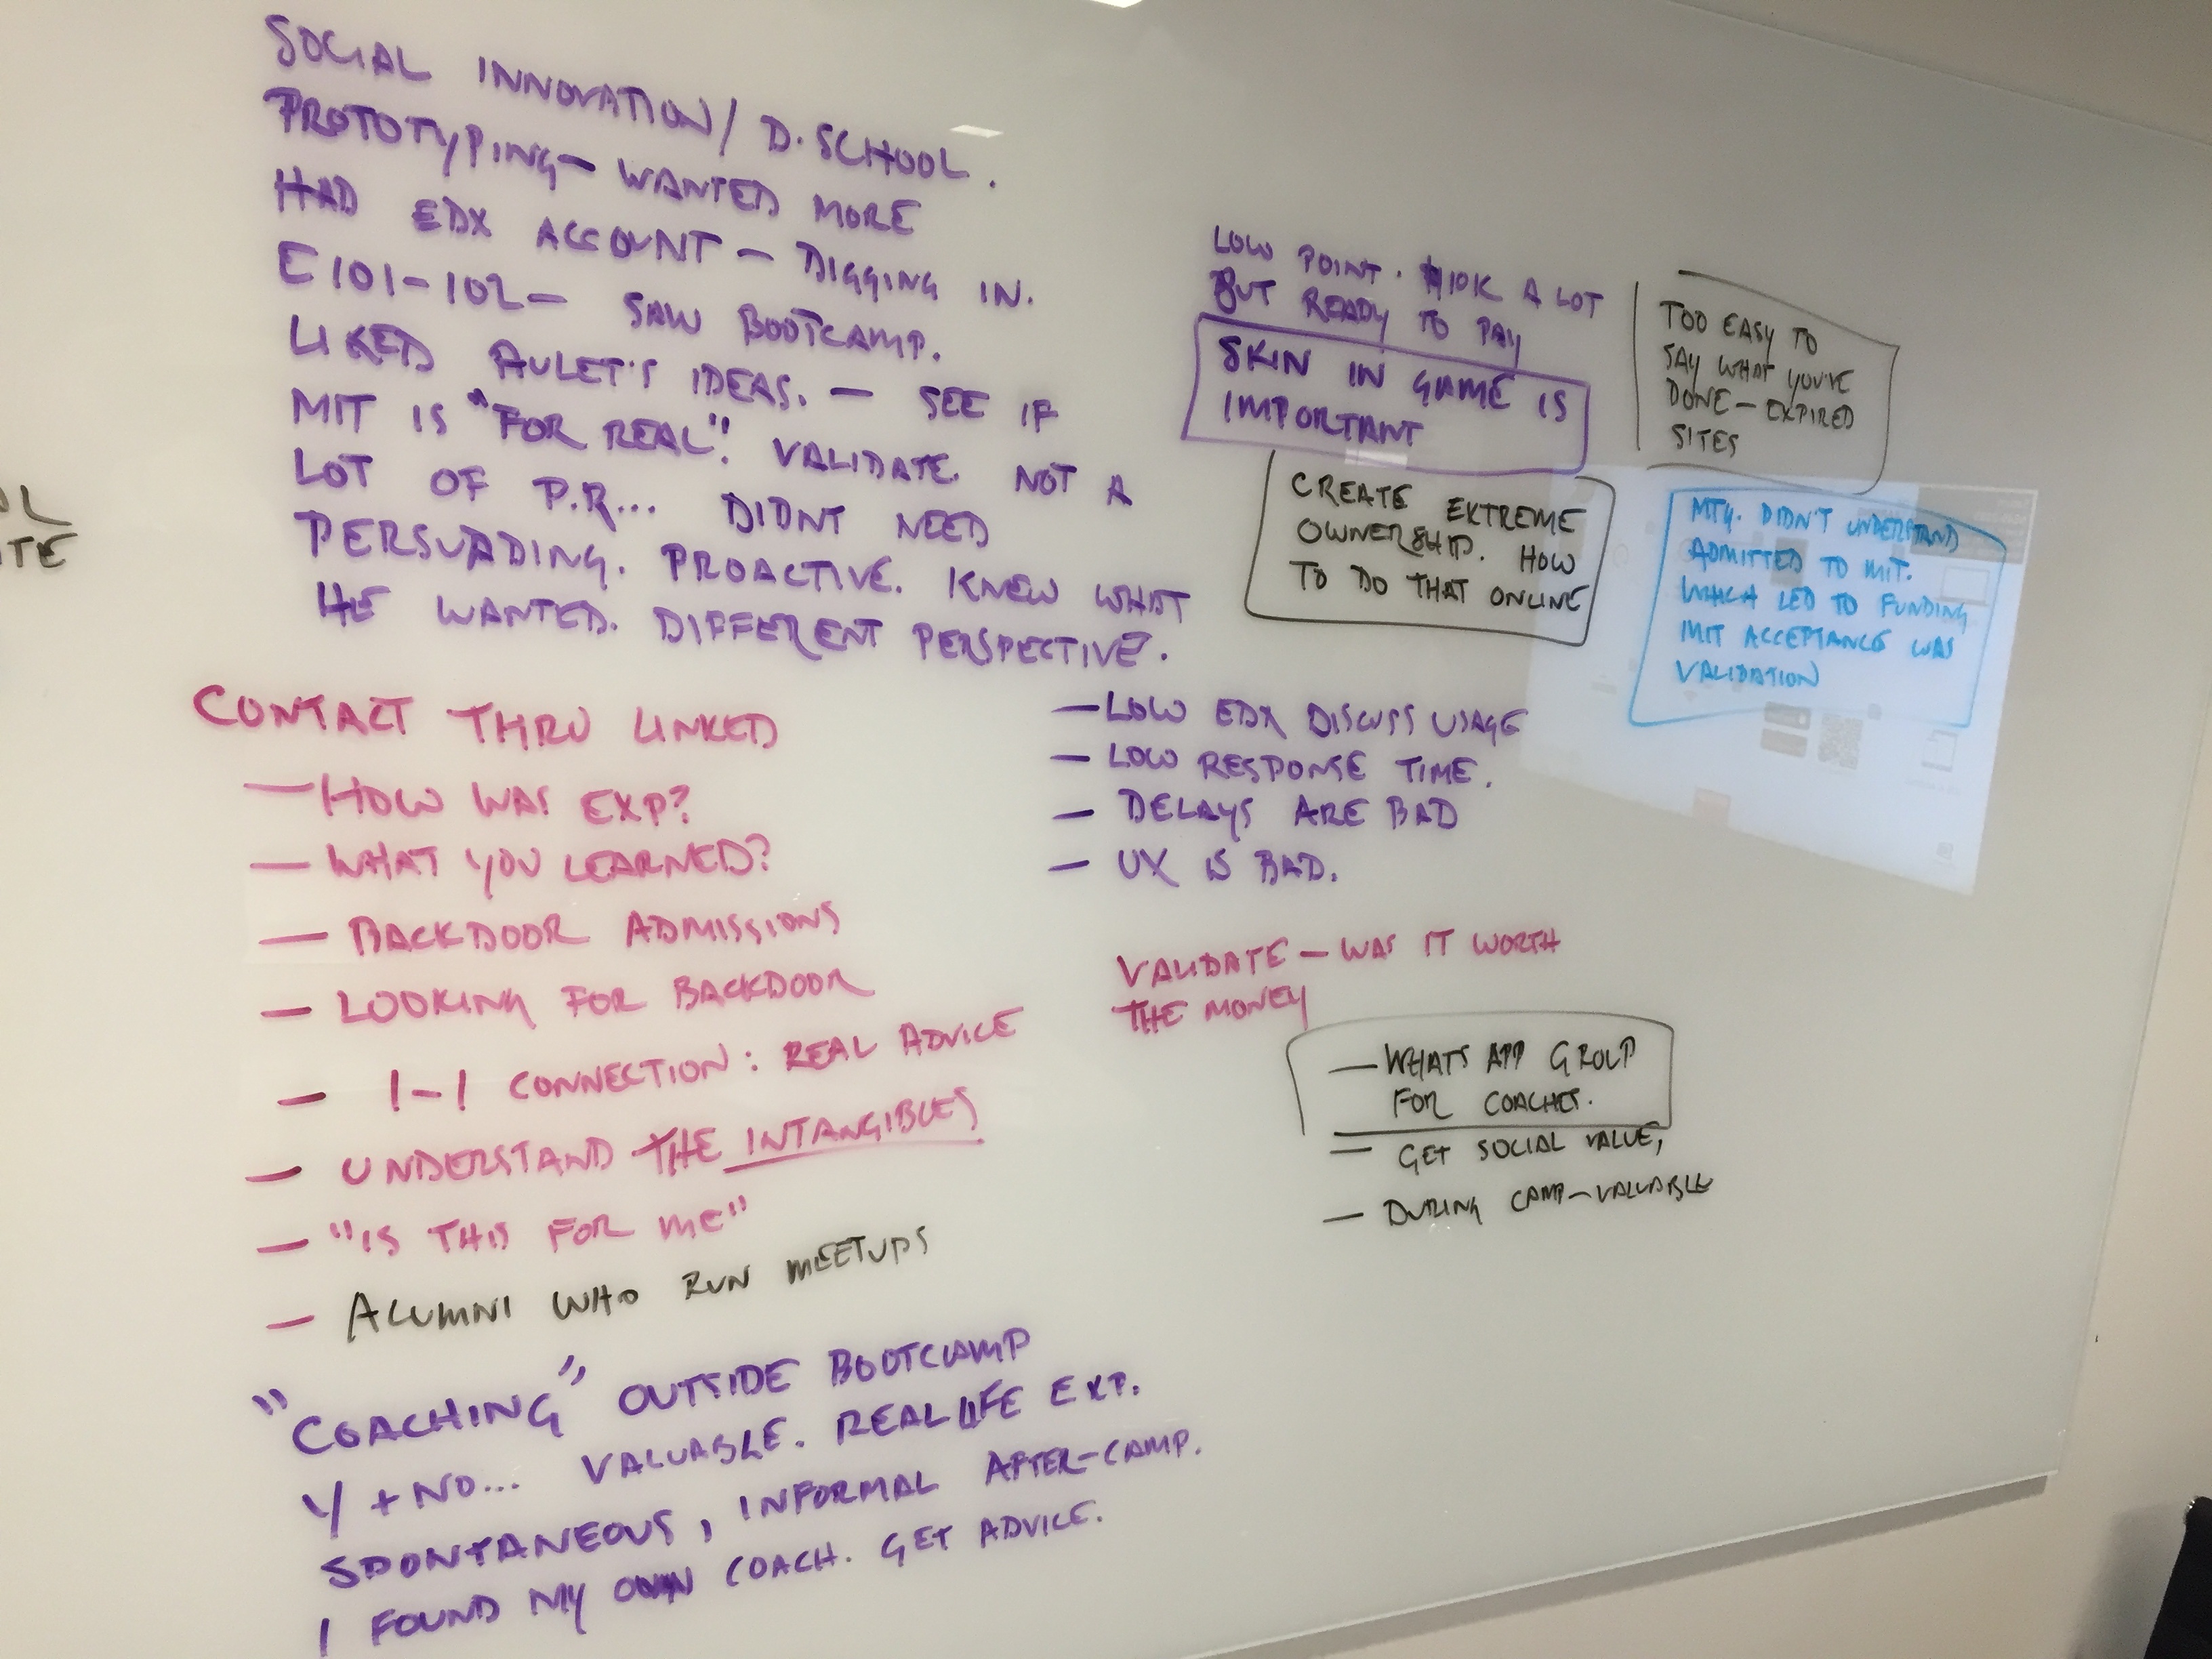 SOCIAL INNOVATION/ D.SCHOOL.
PROTOTYPING— WANTED MORE
HAD EDX ACCOUNT — DIGGING IN.
E101-102— SAW BOOTCAMP.
LIKED AULET'S IDEAS. — SEE IF
MIT IS "FOR REAL". VALIDATE. NOT A
LOT OF P.R... DIDNT NEED
PERSUADING. PROACTIVE. KNEW WHAT
HE WANTED. DIFFERENT PERSPECTIVE.
CONTACT THRU LINKED
— HOW WAS EXP?
— WHAT YOU LEARNED?
— BACKDOOR ADMISSIONS
— LOOKING FOR BACKDOOR
— 1-1 CONNECTION: REAL ADVICE
— UNDERSTAND THE INTANGIBLES
— "IS THIS FOR ME"
— ALUMNI WHO RUN MEETUPS
"COACHING" OUTSIDE BOOTCAMP
Y + NO... VALUABLE. REAL LIFE EXP.
SPONTANEOUS, INFORMAL AFTER-CAMP.
I FOUND MY OWN COACH. GET ADVICE.
LOW POINT. $10K A LOT
BUT READY TO PAY
SKIN IN GAME IS
IMPORTANT
CREATE EXTREME
OWNERSHIP. HOW
TO DO THAT ONLINE
TOO EASY TO
SAY WHAT YOU'VE
DONE — EXPIRED
SITES
MTG. DIDN'T UNDERSTAND
ADMITTED TO MIT.
WHICH LED TO FUNDING
MIT ACCEPTANCE WAS
VALIDATION
— LOW EDX DISCUSS USAGE
— LOW RESPONSE TIME.
— DELAYS ARE BAD
— UX IS BAD.
VALIDATE — WAS IT WORTH
THE MONEY
— WHATS APP GROUP
FOR COACHES.
— GET SOCIAL VALUE,
— DURING CAMP — VALUABLE